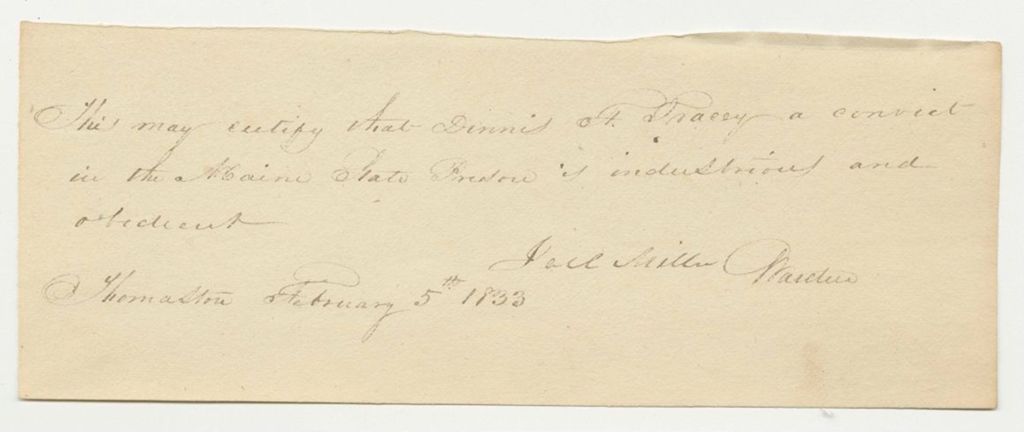 This may certify that Dennis F. Tracey a convict
in the Maine State Preson is industrious and
obedient
Joel Miller Warden
Thomaston February 5th 1833